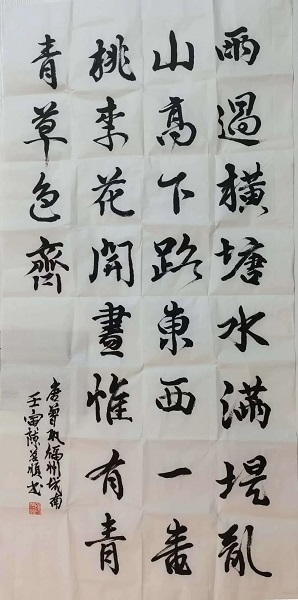 雨過橫塘水滿堤亂
山高下路東西一番
桃李花開盡惟有青
青草色齊
曾巩福州城南
壬寅陳